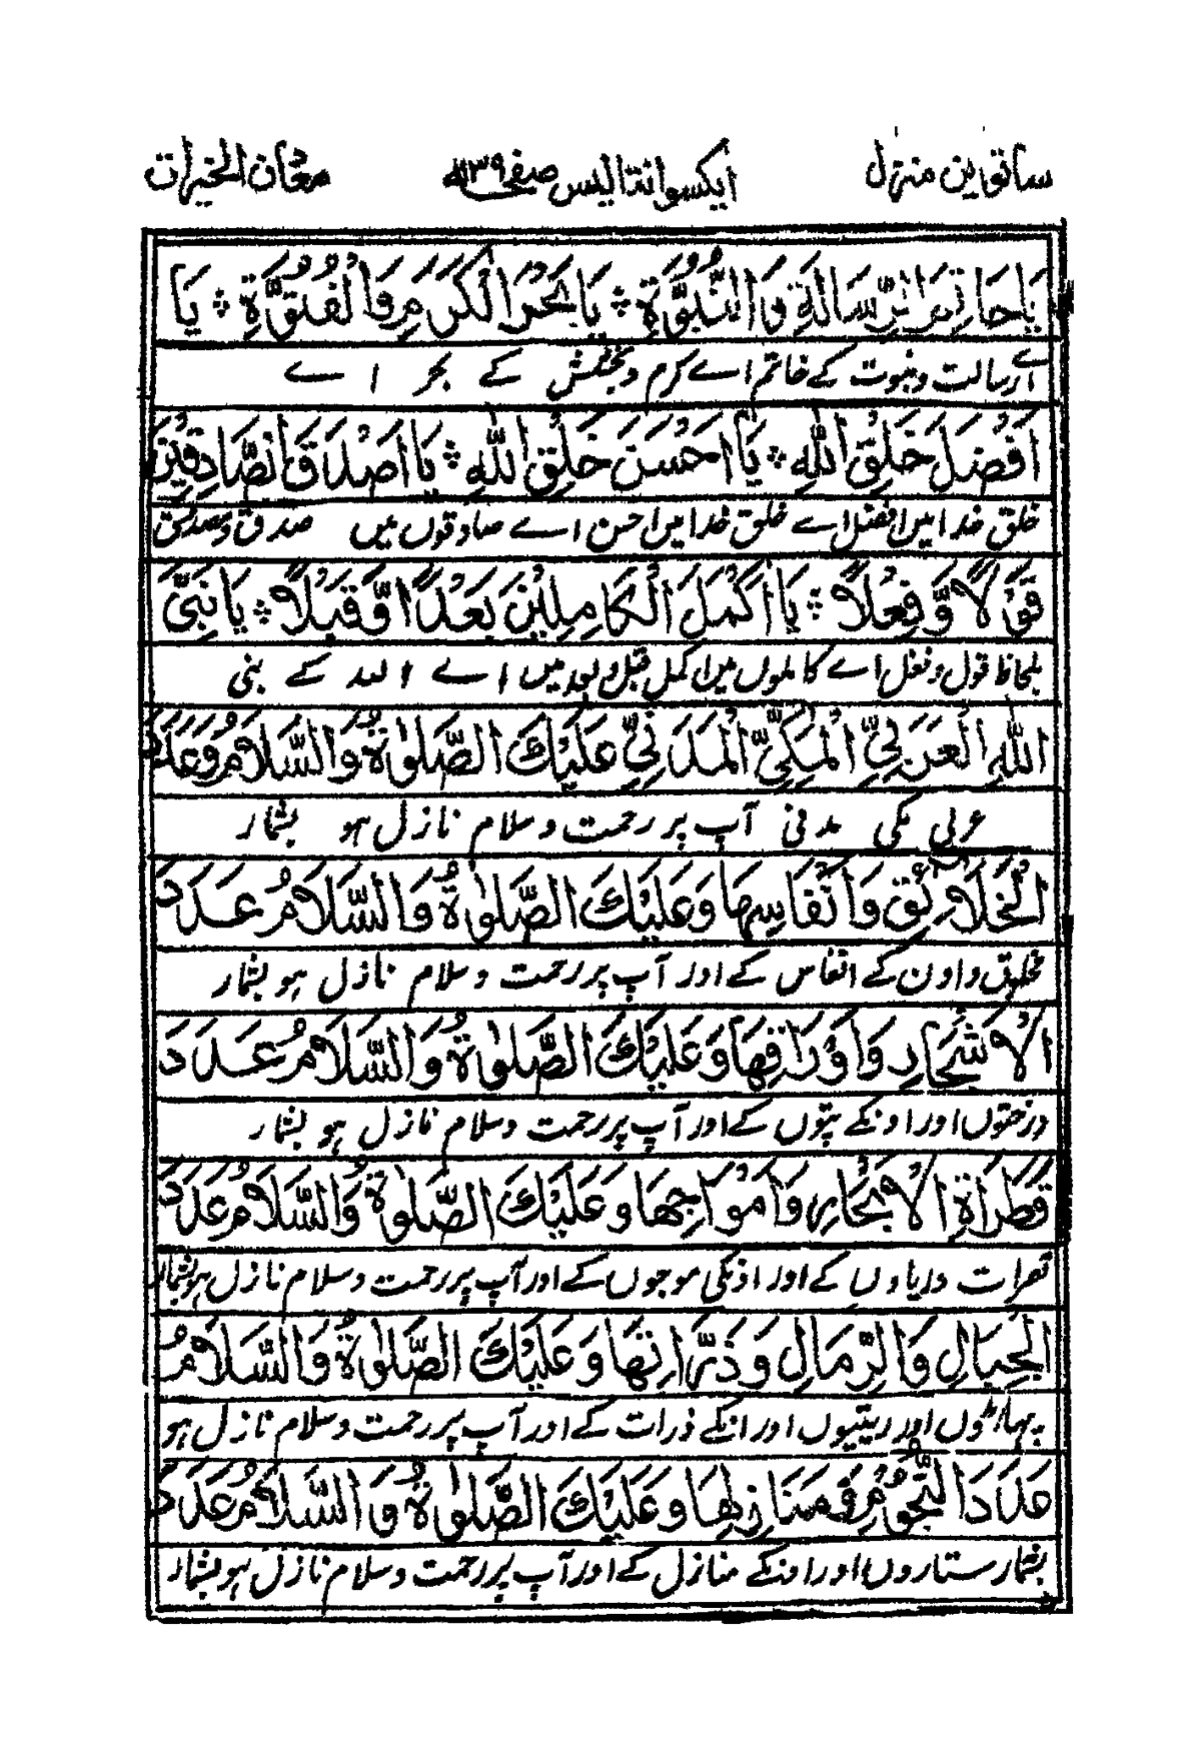 ساتویں منزل ایکسوانتالیس صفحہ ١٣٩ معان الخیرات
يَا خَاتِمَ الرِّسَالَةِ وَالنُّبُوَّةِ ؞ يَا بَحْرَ الْكَرَمِ وَالْفُتُوَّةِ ؞ يَا
اے رسالت ونبوت کے خاتم اے کرم وبخشش کے بحر اے
اَفْضَلَ خَلْقِ اللّٰهِ ؞ يَا اَحْسَنَ خَلْقِ اللّٰهِ ؞ يَا اَصْدَقَ الصَّادِقِيْنَ
خلق خدا میں افضل اے خلق خدا میں احسن اے صادقوں میں صدق
قَوْلًا وَّفِعْلًا ؞ يَا اَكْمَلَ الْكَامِلِيْنَ بَعْدًا وَّقَبْلًا ؞ يَا نَبِيَّ
بلحاظ قول وفعل اے کاملوں میں اکمل قبل وبعد میں اے اللہ کے نبی
اللّٰهِ الْعَرَبِيِّ الْمَكِّيِّ الْمَدَنِيِّ عَلَيْكَ الصَّلٰوةُ وَالسَّلَامُ وَعَدَدَ
عربی مکی مدنی آپ پر رحمت وسلام نازل ہو بشمار
الْخَلَائِقِ وَاَنْفَاسِهَا وَعَلَيْكَ الصَّلٰوةُ وَالسَّلَامُ عَدَدَ
خلایق واون کے انفاس کے اور آپ پر رحمت وسلام نازل ہو بشمار
الْاَشْجَارِ وَاَوْرَاقِهَا وَعَلَيْكَ الصَّلٰوةُ وَالسَّلَامُ عَدَدَ
درختوں اور اونکے پتوں کے اور آپ پر رحمت وسلام نازل ہو بشمار
قَطَرَاةِ الْاَبْحَارِ وَاَمْوَاجِهَا وَعَلَيْكَ الصَّلٰوةُ وَالسَّلَامُ عَدَدَ
قطرات دریاوں کے اور اونکی موجوں کے اور آپ پر رحمت وسلام نازل ہو بشمار
الْجِبَالِ وَالرِّمَالِ وَذَرَّاتِهَا وَعَلَيْكَ الصَّلٰوةُ وَالسَّلَامُ
پہاڑوں اور ریتیوں اور انکے ذرات کے اور آپ پر رحمت وسلام نازل ہو
عَدَدَ النُّجُوْمِ وَمَنَازِلِهَا وَعَلَيْكَ الصَّلٰوةُ وَالسَّلَامُ عَدَدَ
بشمار ستاروں اور اونکے منازل کے اور آپ پر رحمت وسلام نازل ہو بشمار